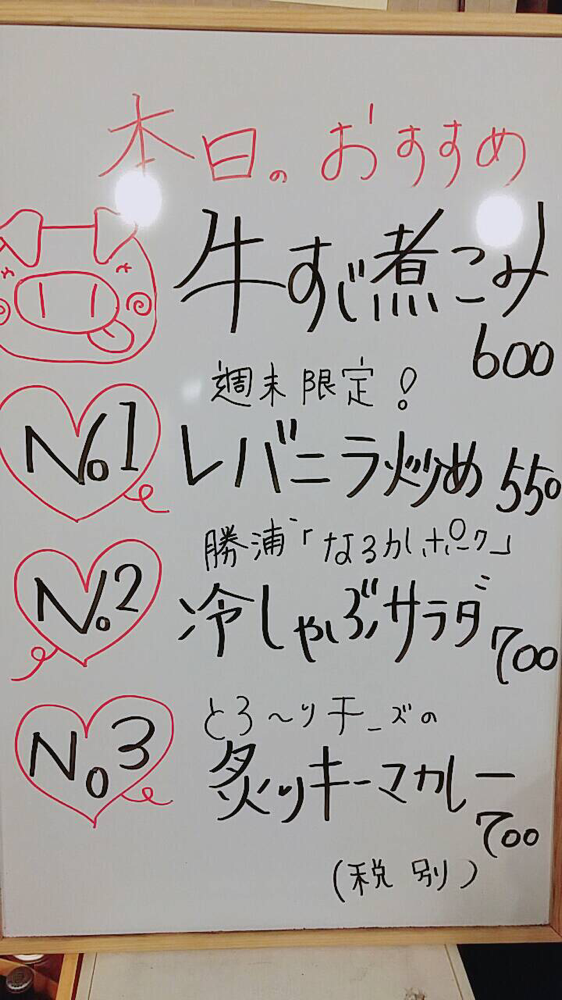 本日のおすすめ
牛すじ煮こみ
600
週末限定!
No.1
レバニラ炒め 550
勝浦「なるかポーク」
No.2
冷しゃぶサラダ 700
とろ〜りチーズの
No3
炙りキーマカレー
700
(税別)